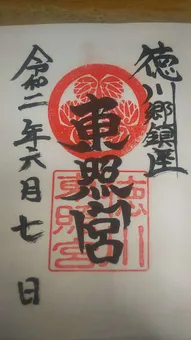 徳川郷鎮座
東照宮
徳川東照宮
令和二年六月七日